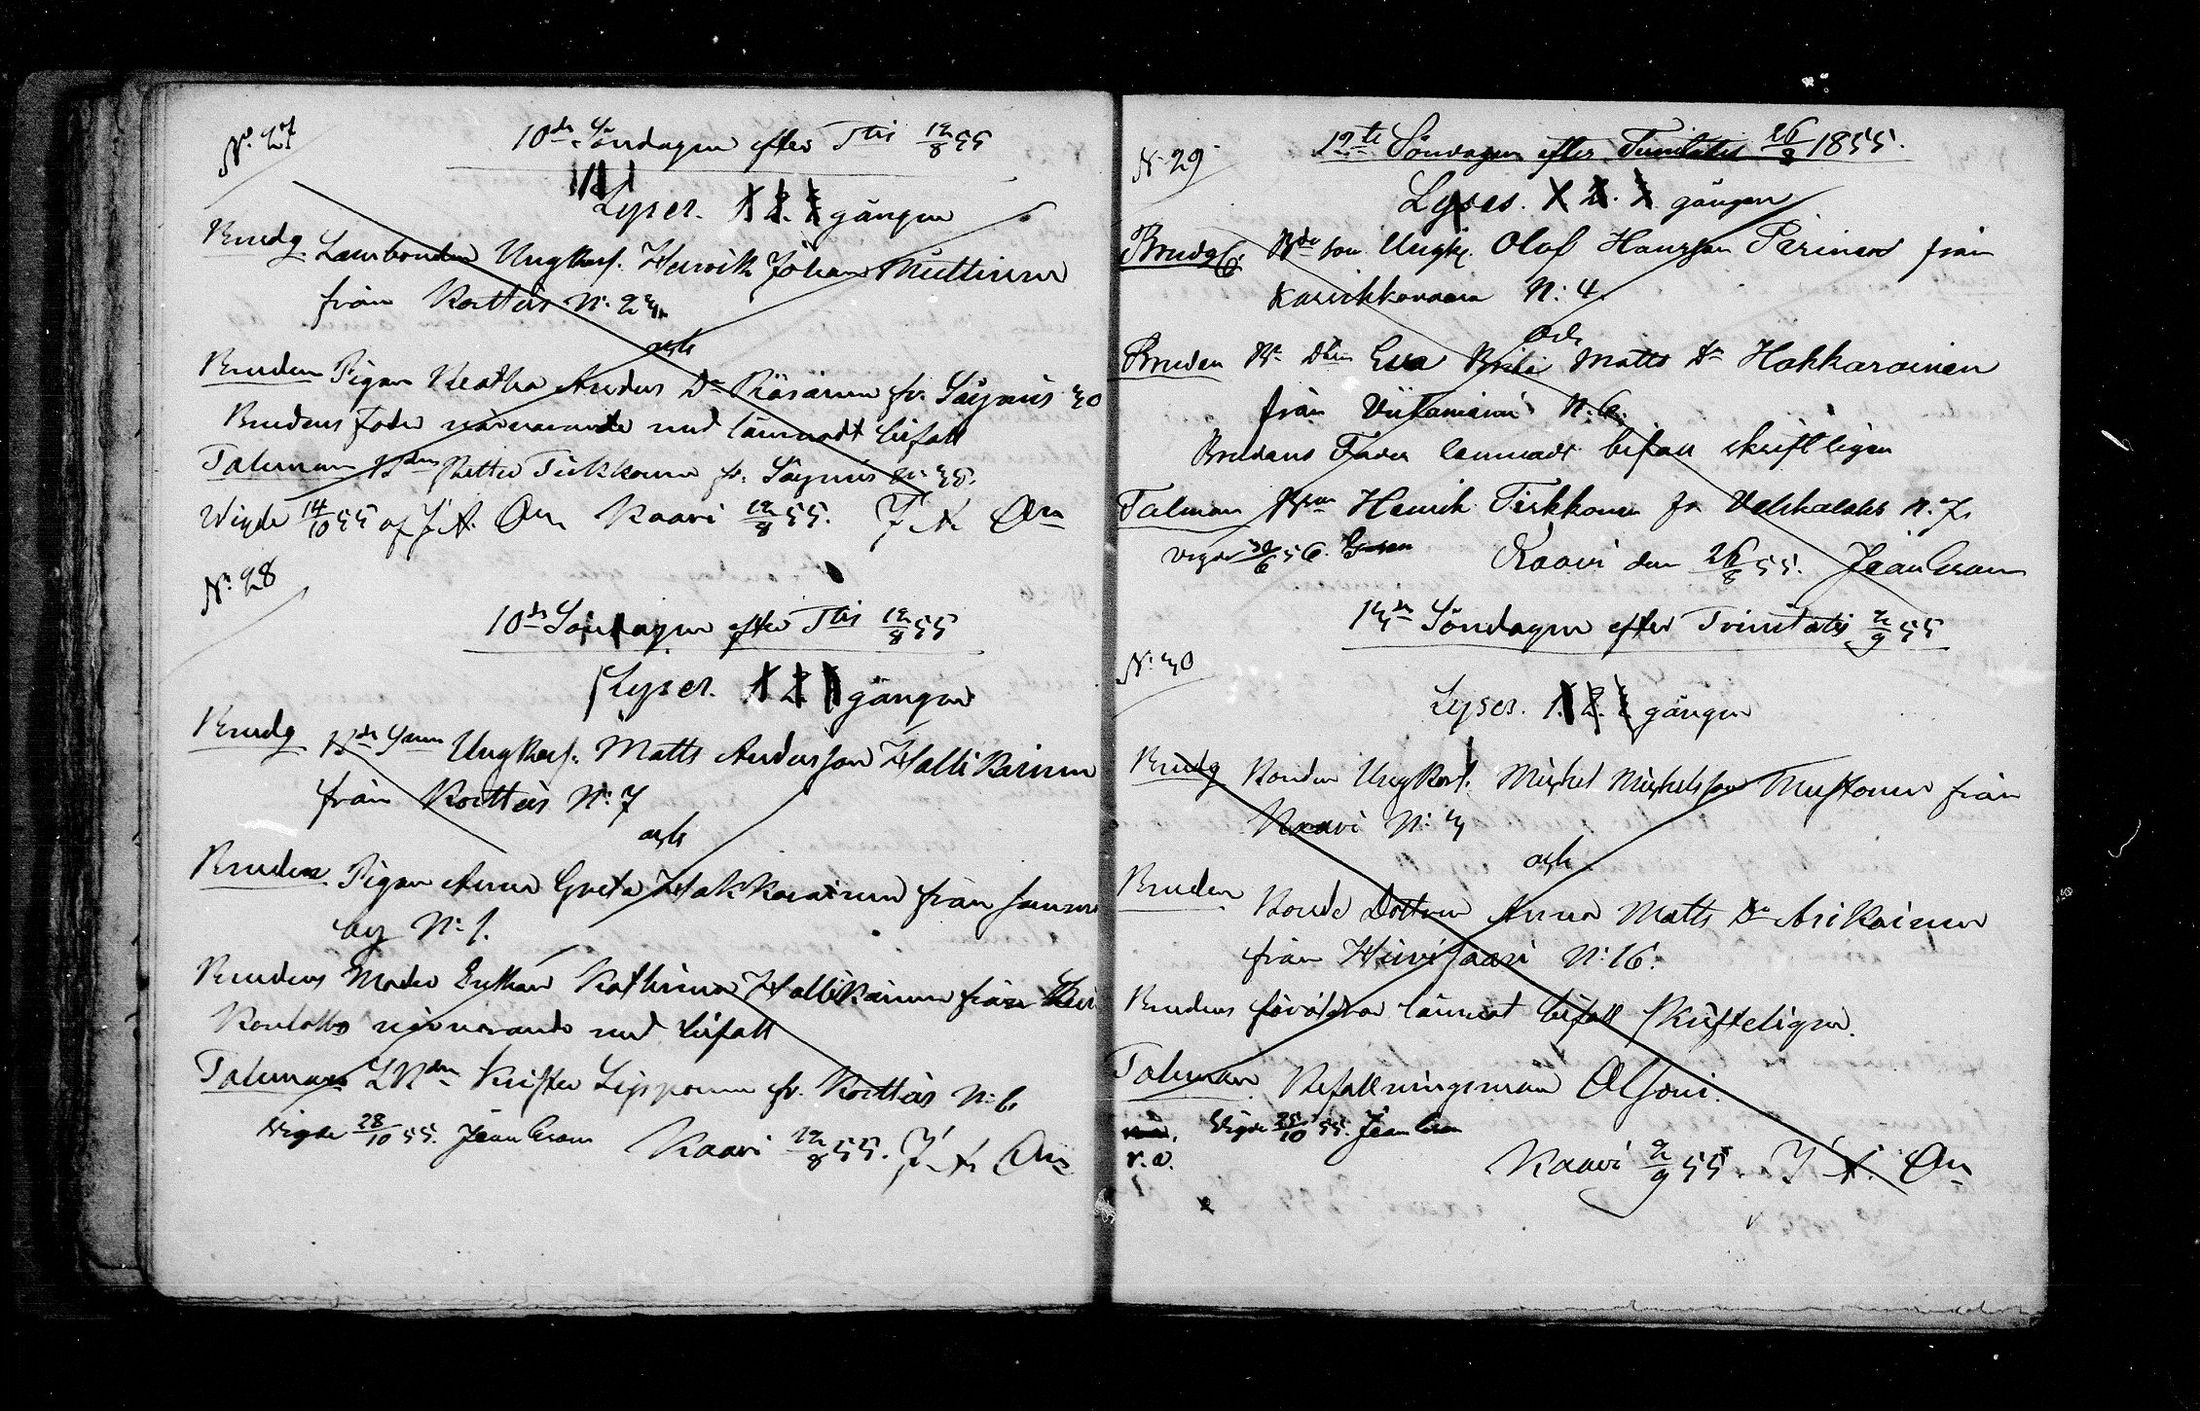 N:o 27
10de Söndagen efter Ttis 12/8 55
Lyses. 1 2. 3 gången
Brudg. Landbonden Ungkarl. Henrik Johan Muttinen
från Kortteis N:o 23
och
Bruden Pigan Keatha Anders Dr Räsänen fr. Säyneis 30
Brudens Fader närvarande med lämnadt bifall
Talman Bdn Petter Tirkkonen fr. Säyneis N: 35.
Wigde 14/10 55 af J A. Öhn Kaavi 12/8 55. J A Öhn
N:o 28
10de Söndagen efter Ttis 12/8 55
Lyses. 1 2 3 gången
Brudg Bde Sonen Ungkarl. Matts Andersson Hallikainen
från Kortteis N:o 7
och
Bruden Pigan Anna Greta Hakkarainen från
by N:o 1.
Brudens Moder Enkan Kathrina Hallikainen från
närvarande med bifall
Talman LBdn Krister Lipponen fr. Kortteis N:o 6
Wigde 28/10 55. Jean Cran Kaavi 12/8 55. J A Öhn
N:o 29
12te Söndagen efter Trinitatis 26/8 1855.
Lyses. 1 2. 3. gången
Brudg: Bde son Ungk. Olof Hansson Parinen från
Karikkovaara N:o 4.
Och
Bruden Be Dtrn Eva Brita Matts Dr Hakkarainen
från Viitaniemi N:o 6.
Brudens Fader lemnadt bifall skriftligen
Talman Bdn Henrik Tirkkonen fr N:o 7.
vigde 30/6 56. Kaavi den 26/8 55. Jean Cran
13de Söndagen efter Trinitatis 2/9 55
N:o 30
Lyses. 1. 2. 3 gången
Brudg Bonden Ungkarl. Michel Michelsson Mustonen från
Kaavi N:o 3
och
Bruden Bonde Dottren Anna Matts Dr Asikainen
från Hirvisaari N:o 16.
Brudens föräldrar lämnat bifall skrifteligen.
Talman. Befallningsman Alfoni.
Wigde 25/10 55. Jean Cran
v. a.
Kaavi 2/9 55. J A. Öhn